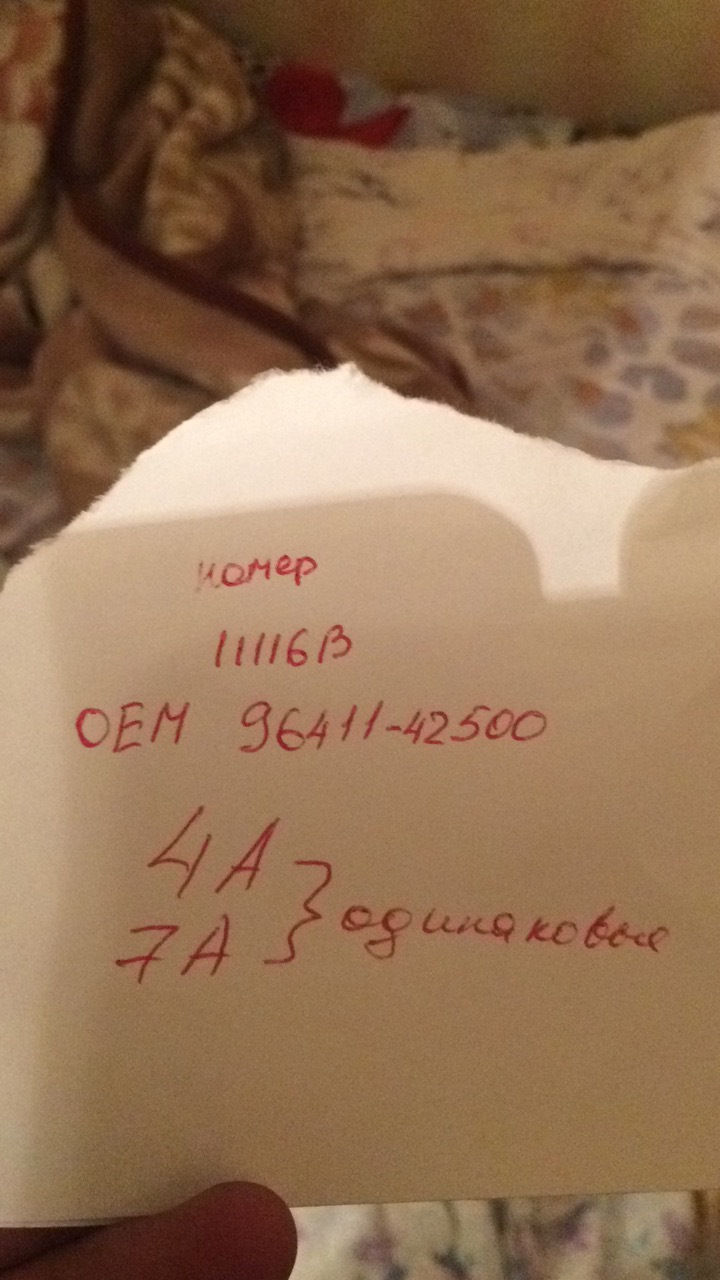 номер
11116B
OEM 96411-42500
4A
7A } одинаковые